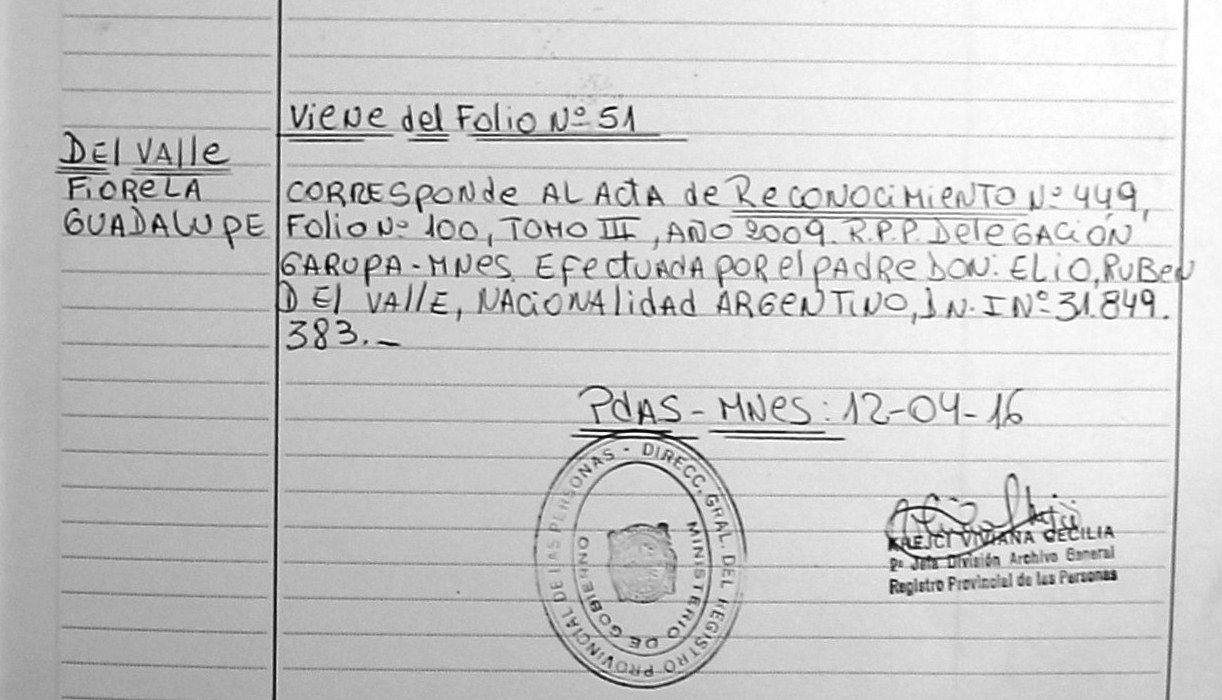 Viene del Folio Nº 51
DEl VAlle
FiORelA
GUADALUPE
CORRESPONde AL ActA de RecONOCiMieNTO Nº 449,
Folio Nº 100, TOMO III, AÑO 2009. R.P.P. DeleGACiÓN
GARUPA-MNes. EfectUADA POR el PADRE DON: ELiO, RUBeN
DEl VAllE, NACiONAlidAd ARGeNTiNO, D.N.I Nº 31.849.
383.-
PdAS-MNes: 12-04-16
DIRECC. GRAL. DEL REGISTRO PROVINCIAL DE LAS PERSONAS -
MINISTERIO DE GOBIERNO
KREJCI VIVIANA CECILIA
2º Jefa División Archivo General
Registro Provincial de las Personas